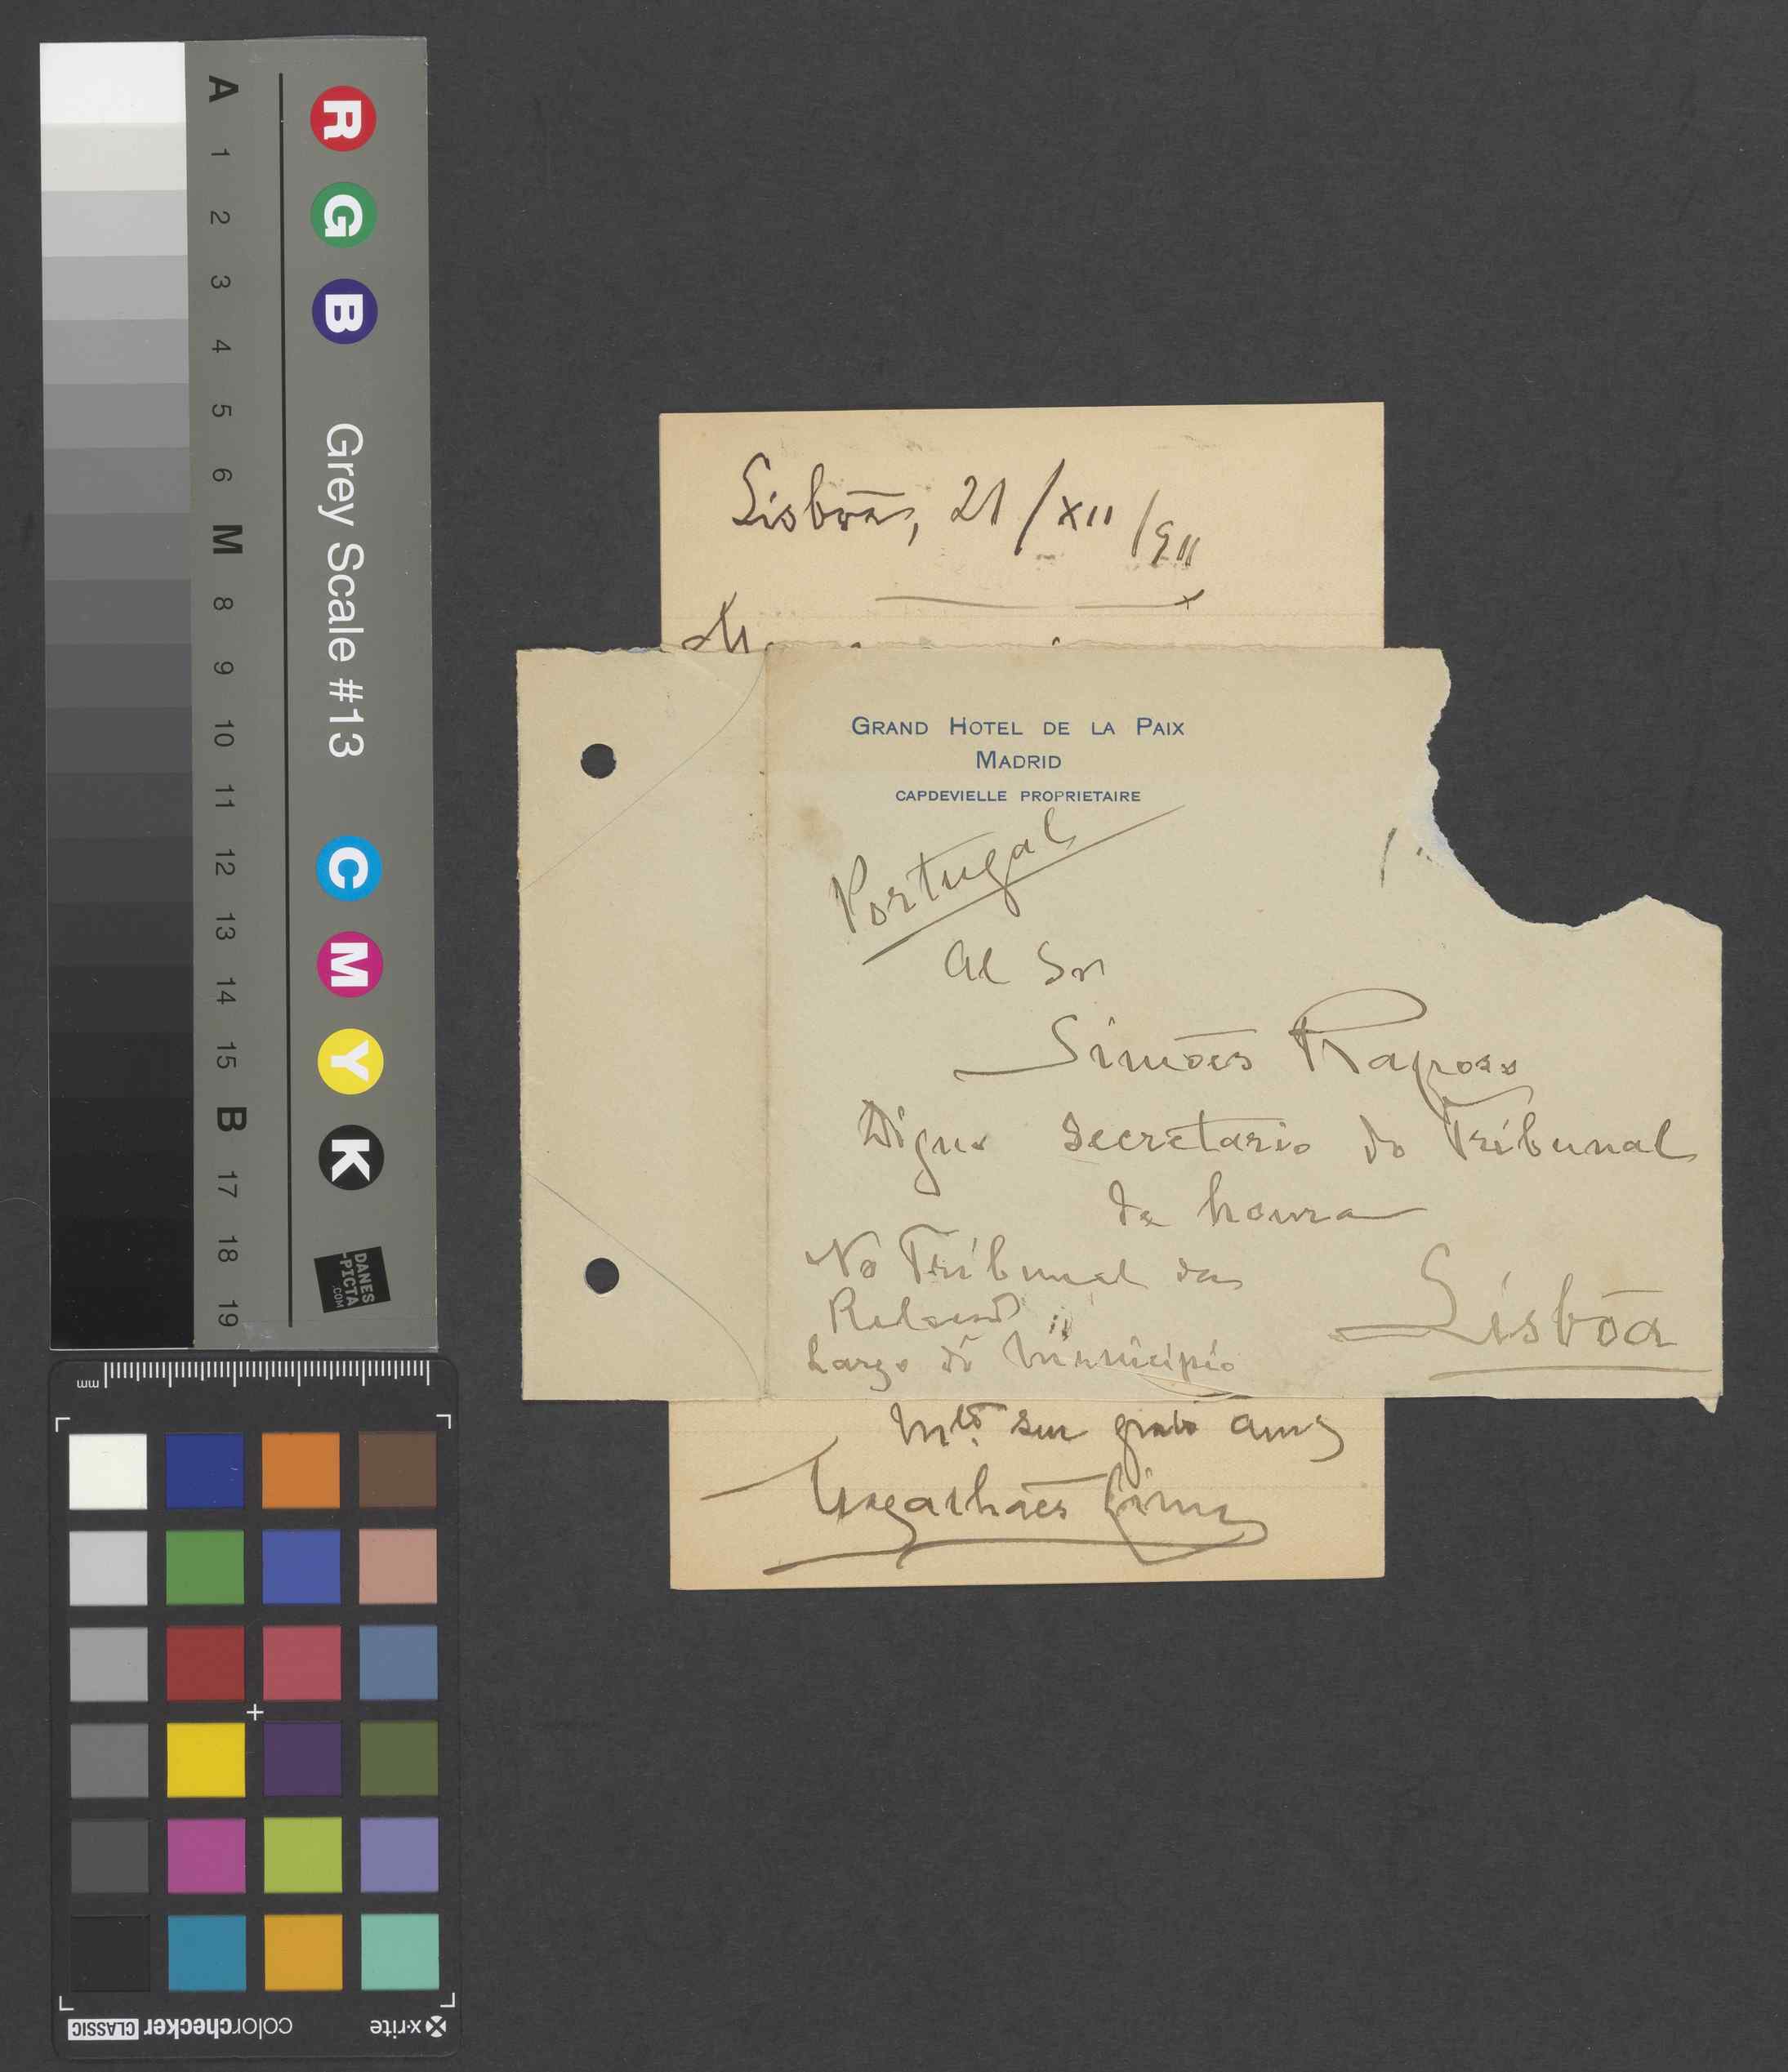 A
1
2
3
4
5
6
M
8
9
10
11
12
13
14
15
B
17
18
19
R
G
B
Grey Scale #13
C
M
Y
K
DANES
-PICTA
.COM
mm
x·rite
colorchecker CLASSIC
Lisbôa, 21/XII/911
GRAND HOTEL DE LA PAIX
MADRID
CAPDEVIELLE PROPRIETAIRE
Portugal
Al Snr
Simões Raposo
Digno Secretario do Tribunal
de honra
No Tribunal da
Largo do Municipio
Lisbôa
Mto. seu grato amo
Magalhães Lima